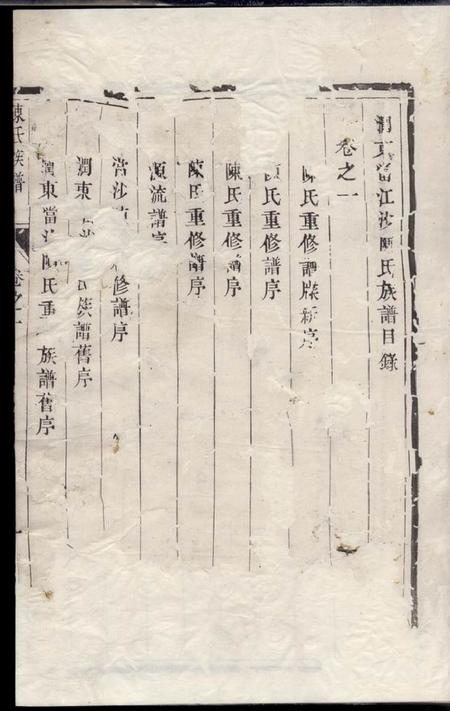 潤東當江沙陳氏族譜目錄
卷之一
陳氏重修譜牒新序
陳氏重修譜序
陳氏重修譜序
陳氏重修譜序
源流譜序
當沙 修譜序
潤東 氏族譜舊序
潤東當沙陳氏重 族譜舊序
陳氏族譜 卷之一